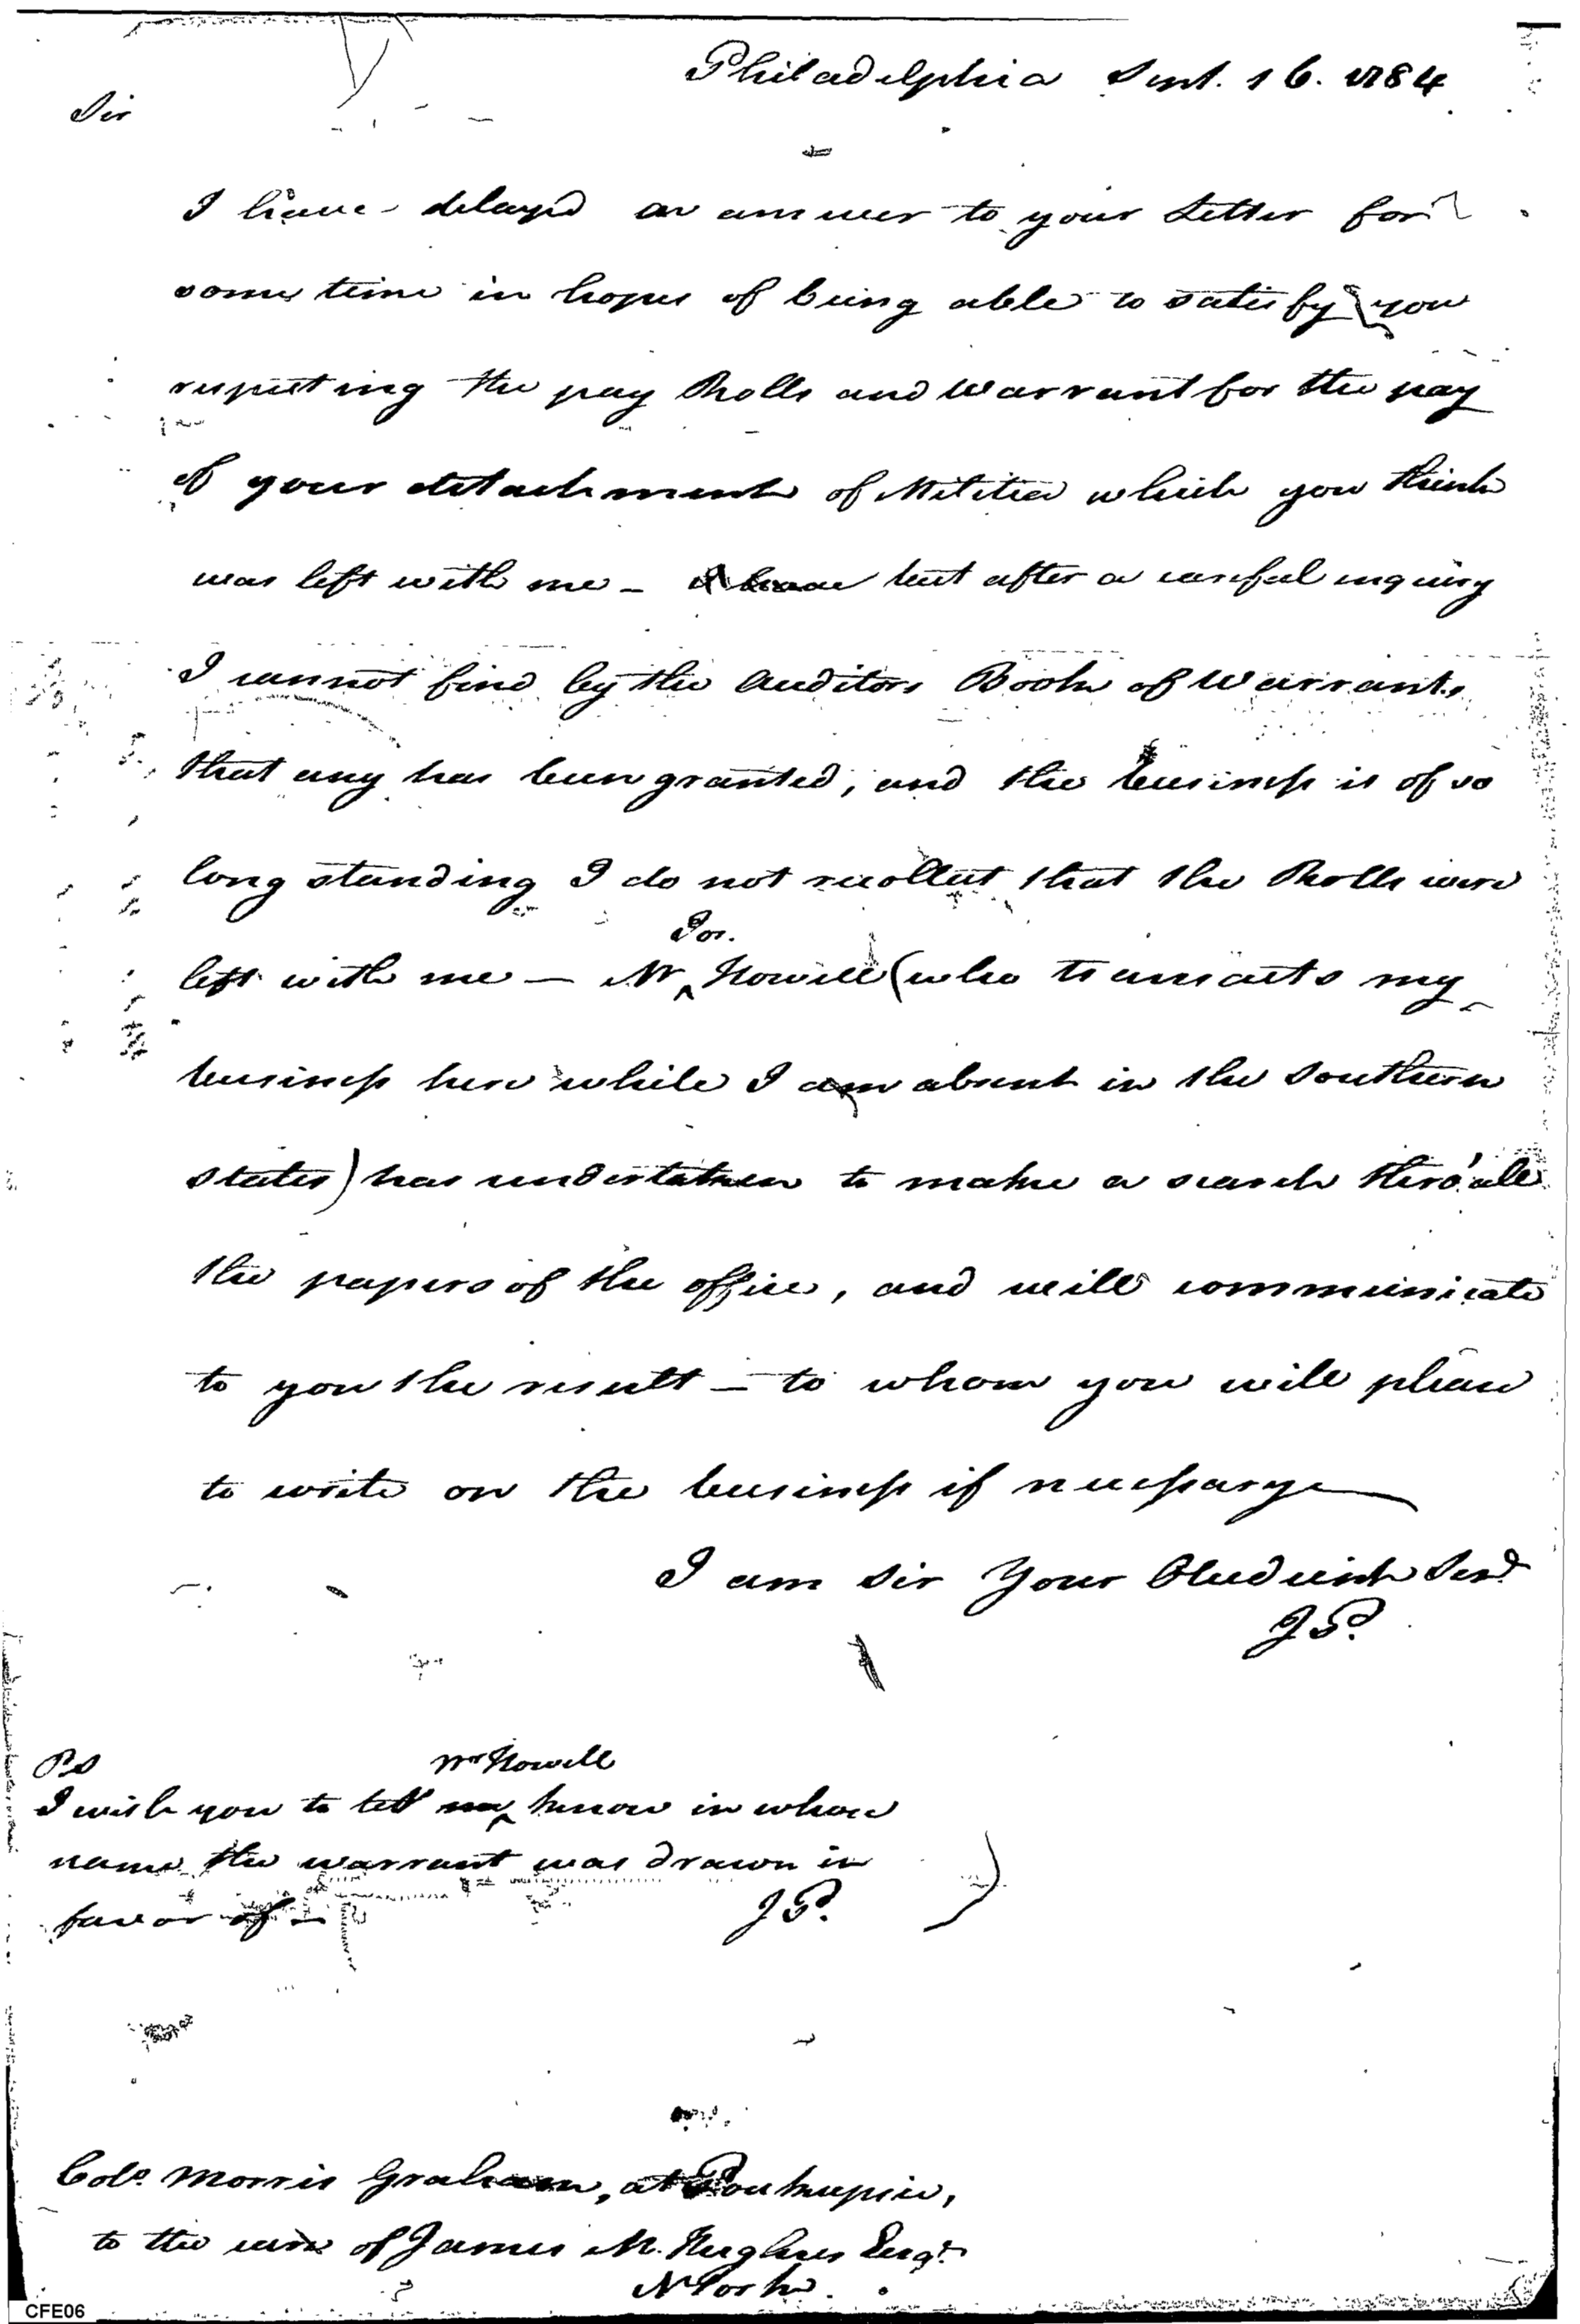 Philadelphia Sept. 16. 1784
Sir
I have delayed an answer to your Letter for
some time in hopes of being able to satisfy you
respecting the pay Rolls and Warrant for the pay
of your detachment of Militia which you think
was left with me – I have but after a careful inquiry
I cannot find by the Auditors Books of Warrants
that any has been granted, and the business is of so
long standing I do not recollect that the Rolls were
left with me — Mr Jos. Howell (who transacts my
business here while I am absent in the Southern
states) has undertaken to make a search thro' all
the papers of the office, and will communicate
to you the result – to whom you will please
to write on the business if necessary
I am Sir Your Obedient Servt
JP.
PS
I wish you to let me Mr Howell know in whose
name the warrant was drawn in
favor of –
JP.
Colo. Morris Graham, at Poukeepsie,
to the care of James M. Hughes Esqr.
N York
CFE06